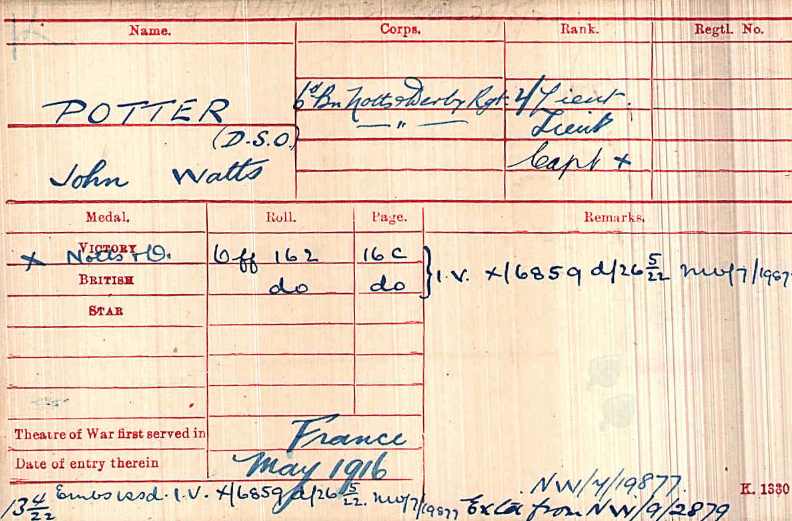 Name. Corps. Rank. Regtl. No.
POTTER 6th Bn Notts & Derby Rgt. 2/Lieut.
(D.S.O.) — " — Lieut
John Watts Capt x
Medal. Roll. Page. Remarks.
VICTORY x Notts & D. Off 162 16C } I.V. x/6859 d/26 5/22 NW/7/19877
BRITISH do do
STAR
Theatre of War first served in France
Date of entry therein May 1916
NW/7/19877. K. 1380
13 4/22 Emb issd. I.V. x/6859 d/26 5/22. NW/7/19877 Extd from NW/9/2879